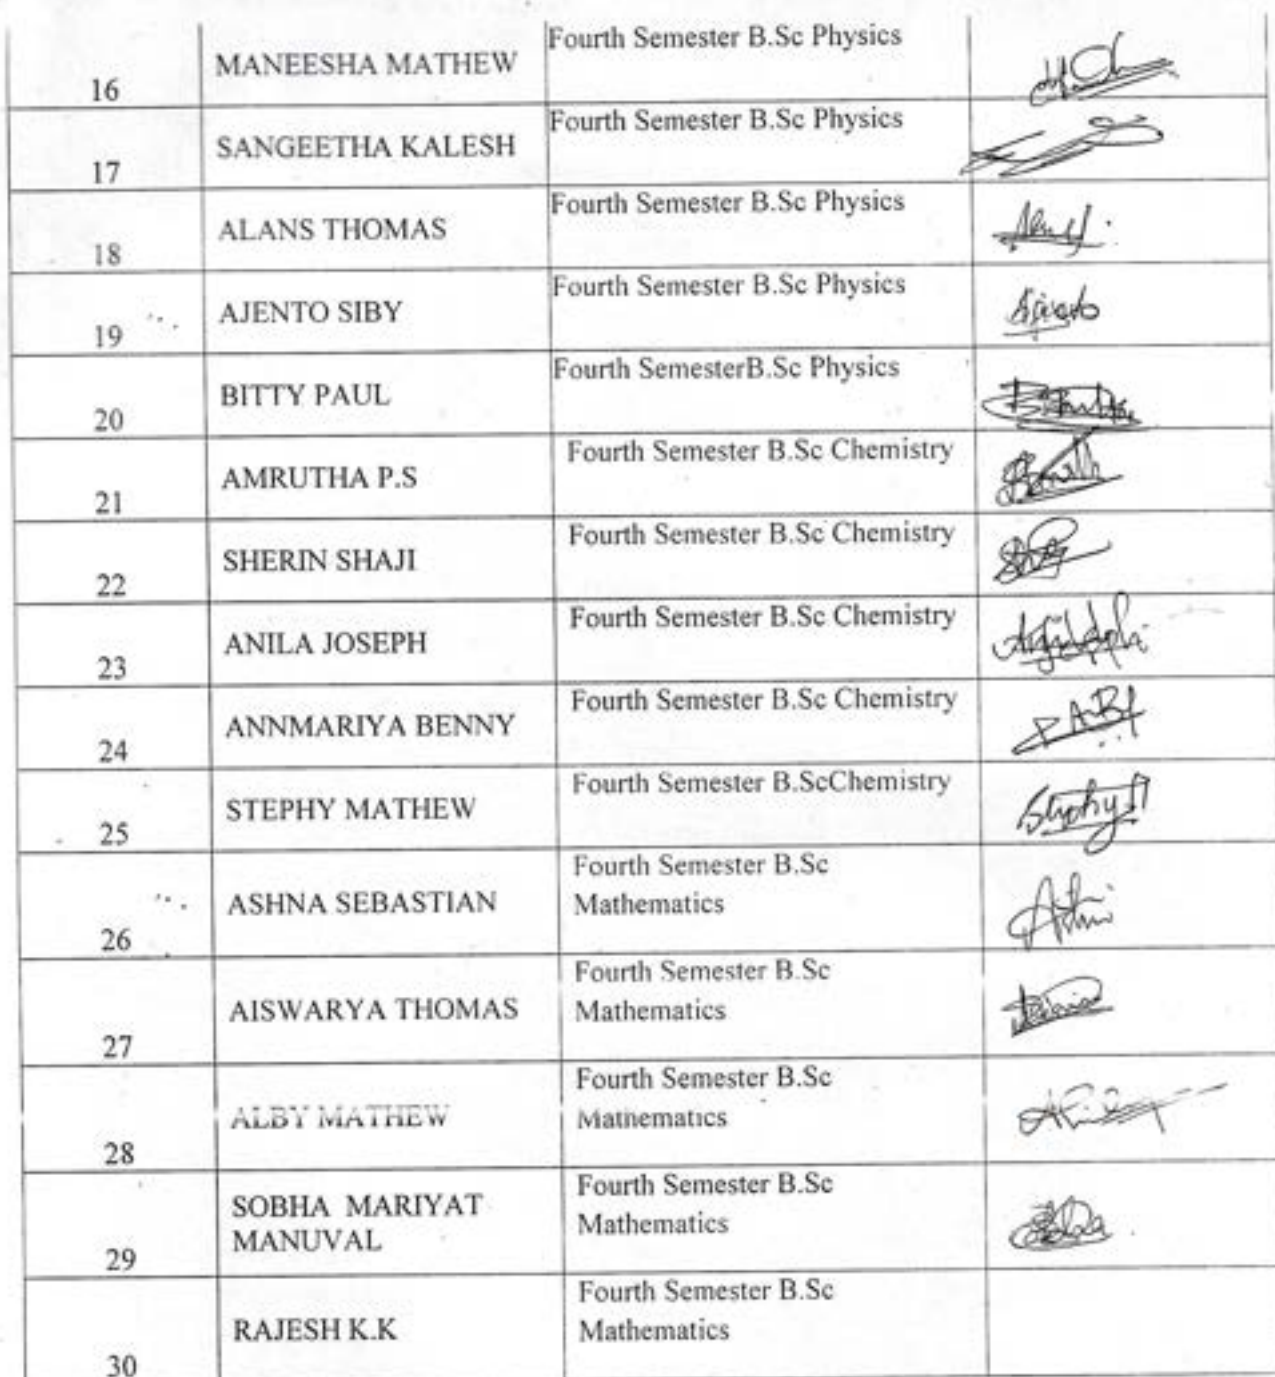 16 MANEESHA MATHEW Fourth Semester B.Sc Physics
17 SANGEETHA KALESH Fourth Semester B.Sc Physics
18 ALANS THOMAS Fourth Semester B.Sc Physics
19 AJENTO SIBY Fourth Semester B.Sc Physics Ajento
20 BITTY PAUL Fourth SemesterB.Sc Physics
21 AMRUTHA P.S Fourth Semester B.Sc Chemistry
22 SHERIN SHAJI Fourth Semester B.Sc Chemistry
23 ANILA JOSEPH Fourth Semester B.Sc Chemistry
24 ANNMARIYA BENNY Fourth Semester B.Sc Chemistry
25 STEPHY MATHEW Fourth Semester B.ScChemistry
26 ASHNA SEBASTIAN Fourth Semester B.Sc
Mathematics
27 AISWARYA THOMAS Fourth Semester B.Sc
Mathematics
28 ALBY MATHEW Fourth Semester B.Sc
Mathematics
29 SOBHA MARIYAT Fourth Semester B.Sc
MANUVAL Mathematics
30 RAJESH K.K Fourth Semester B.Sc
Mathematics